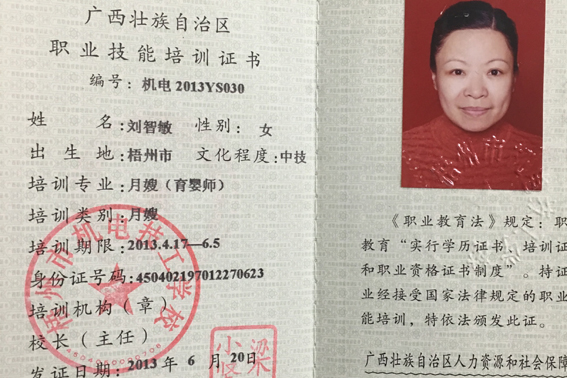 广西壮族自治区
职业技能培训证书
编号：机电2013YS030
姓名：刘智敏 性别：女
出生地：梧州市 文化程度：中技
培训专业：月嫂（育婴师）
培训类别：月嫂
培训期限：2013.4.17—6.5
身份证号码：450402197012270623
培训机构（章）
校长（主任）
发证日期：2013年6月20日
梧州市机电技工学校
《职业教育法》规定：职
教育“实行学历证书、培训证
和职业资格证书制度”。持证
业经接受国家法律规定的职业
能培训，特依法颁发此证。
广西壮族自治区人力资源和社会保障